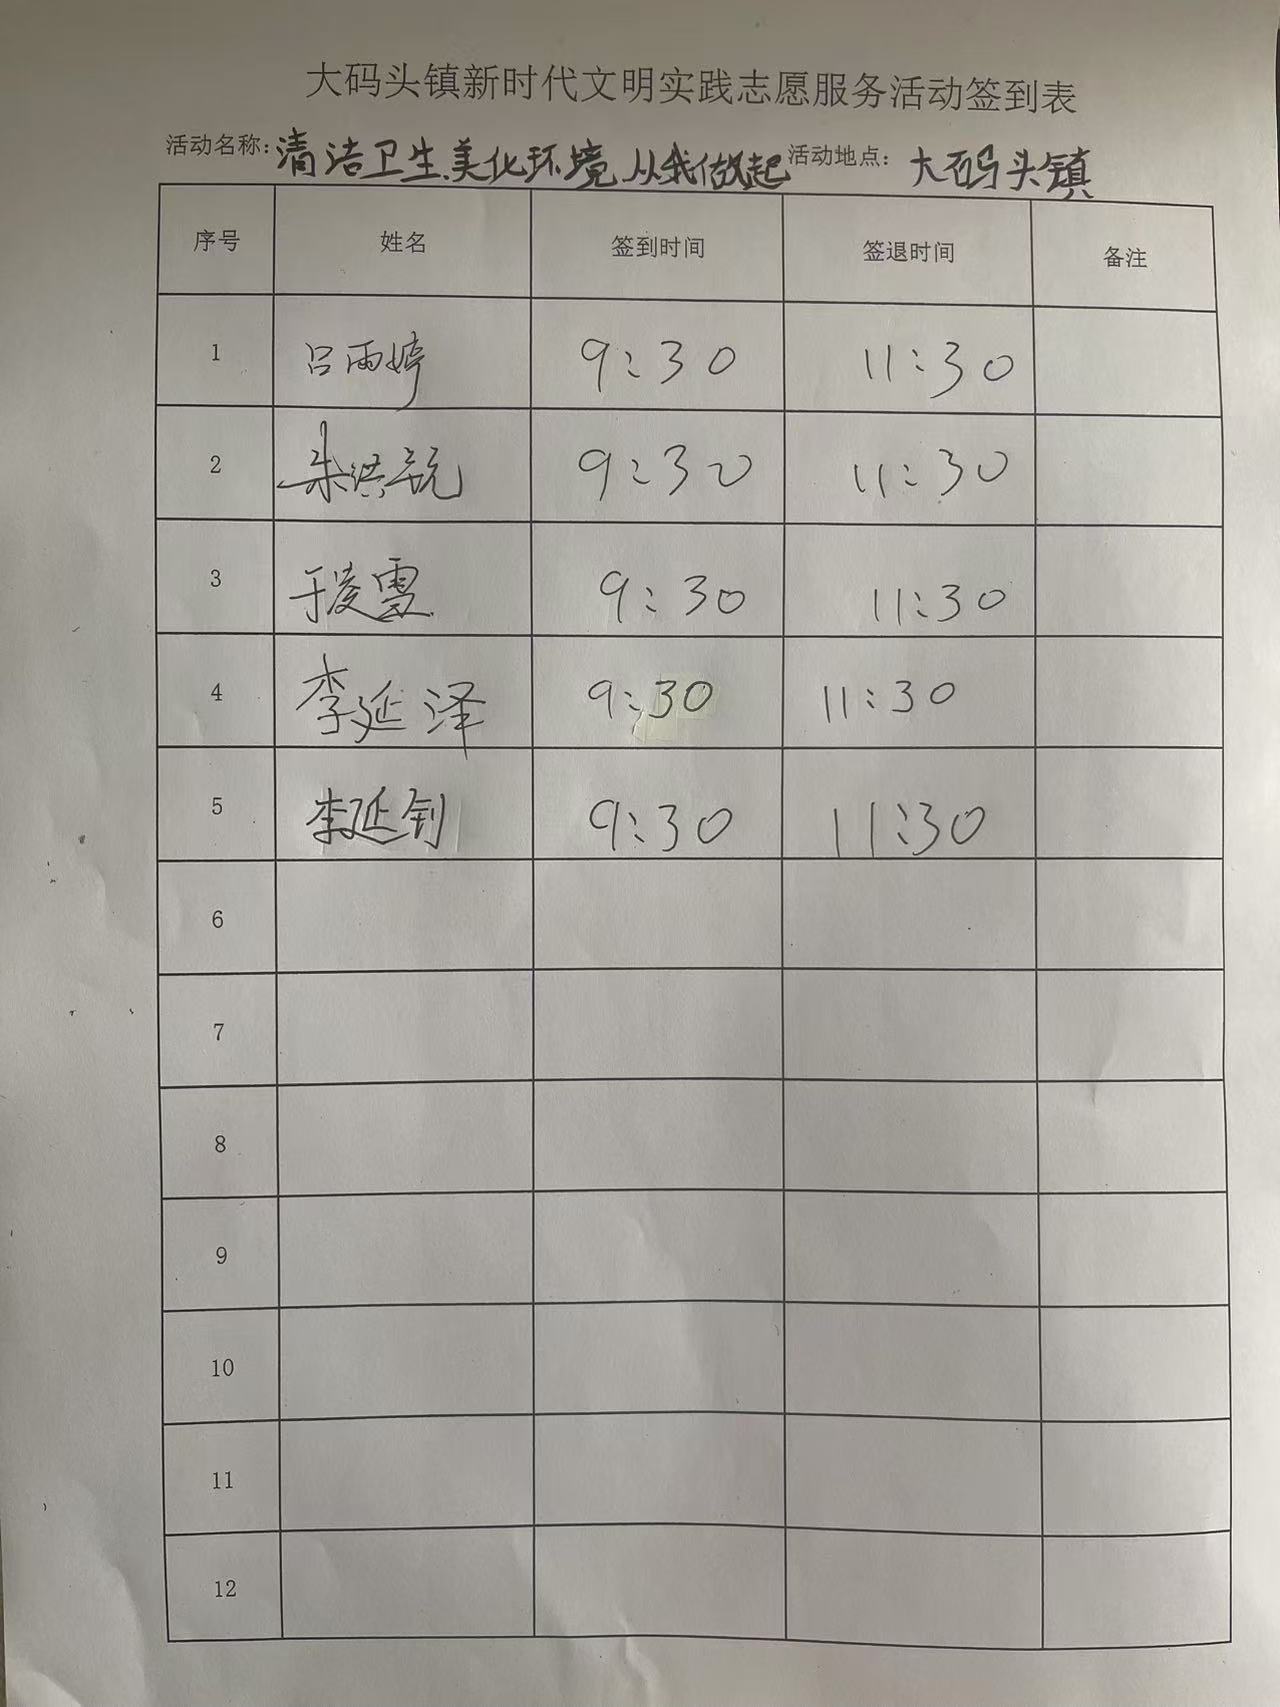 大码头镇新时代文明实践志愿服务活动签到表
活动名称：清洁卫生、美化环境，从我做起 活动地点：大码头镇
序号 姓名 签到时间 签退时间 备注
1 吕雨婷 9:30 11:30
2 朱洪 9:30 11:30
3 于凌雪 9:30 11:30
4 李延泽 9:30 11:30
5 李延钊 9:30 11:30
6
7
8
9
10
11
12